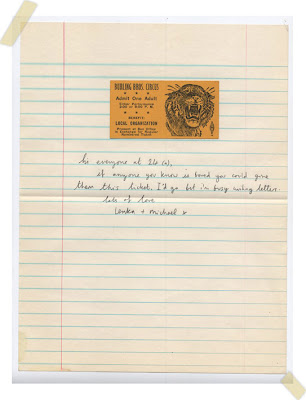 BROS. CIRCUS
Admit One Adult
BENEFIT
LOCAL ORGANIZATION
hi everyone at 26 (a),
if anyone you know is bored you could give
them this ticket. I'd go but i'm busy writing letters.
lots of love
Lenka + Michael x